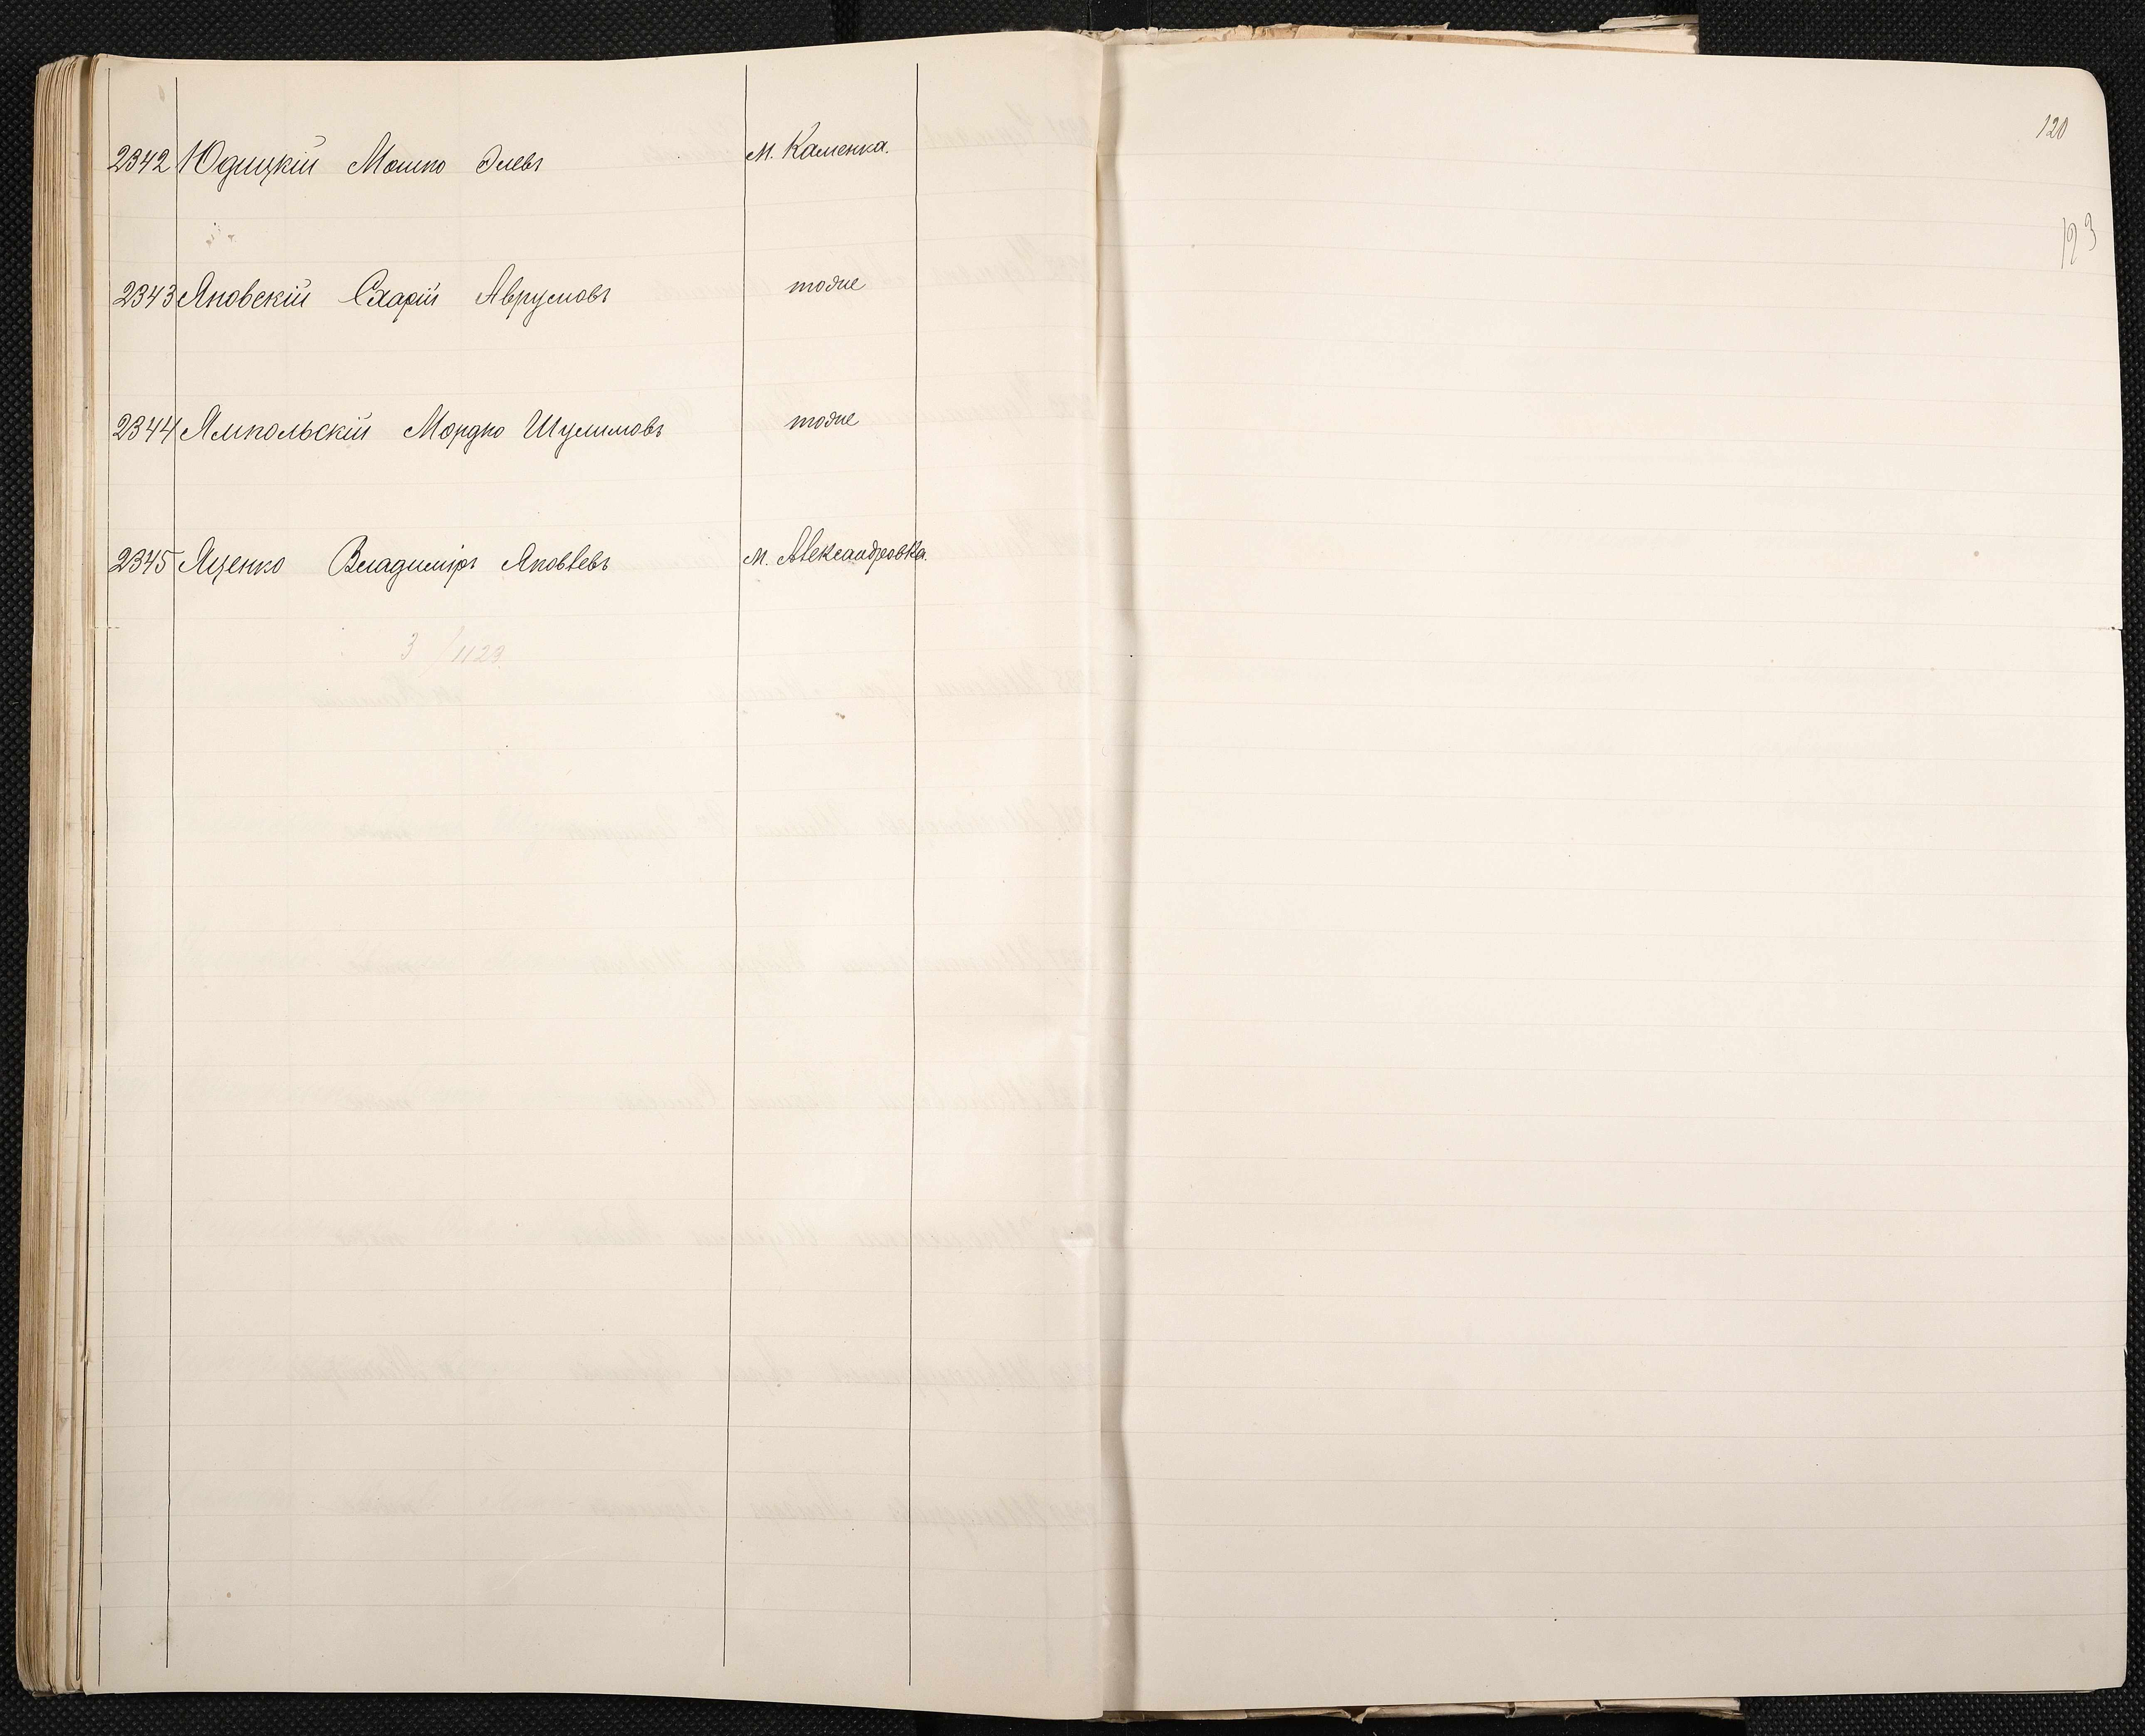 2342 Юдицкій Мошко Элевъ м. Каменка.
2343 Яновскій Схарій Аврумовъ тоже
2344 Ямпольскій Мордко Шулимовъ тоже
2345 Яценко Владиміръ Яковлевъ м. Александровка.
3/1123
120
123